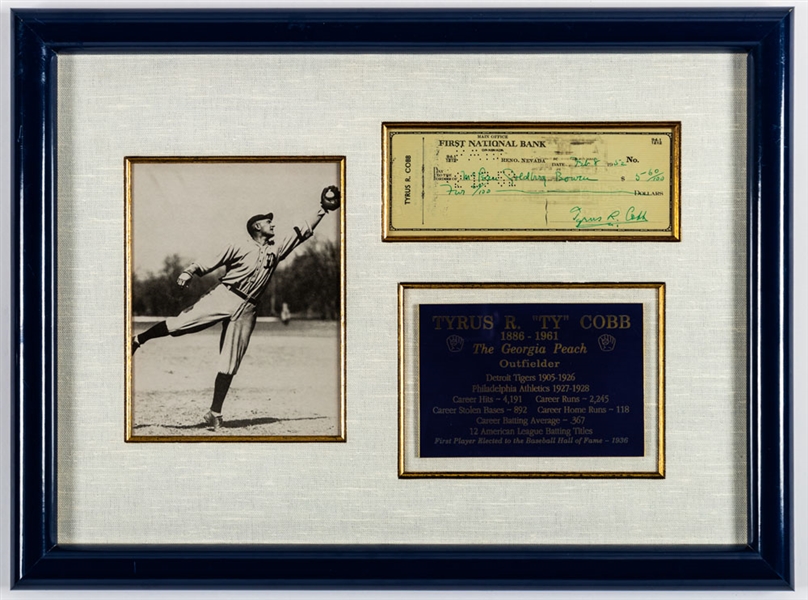 MAIN OFFICE
FIRST NATIONAL BANK
RENO, NEVADA DATE Feb 8 1952 No.
TYRUS R. COBB
PAY TO THE ORDER OF $ 5 60/100
DOLLARS
Tyrus R. Cobb
TYRUS R. "TY" COBB
1886 - 1961
The Georgia Peach
Outfielder
Detroit Tigers 1905-1926
Philadelphia Athletics 1927-1928
Career Hits ~ 4,191 Career Runs ~ 2,245
Career Stolen Bases ~ 892 Career Home Runs ~ 118
Career Batting Average ~ .367
12 American League Batting Titles
First Player Elected to the Baseball Hall of Fame ~ 1936